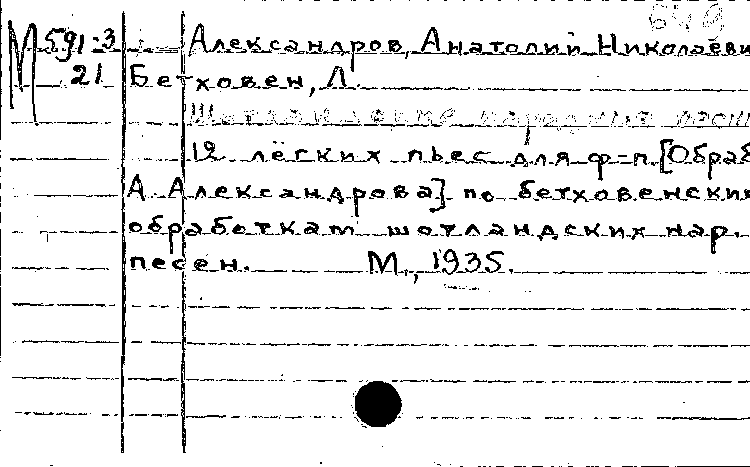 649
М 591-3 Александров, Анатолий Николаеви
21 Бетховен, Л.
Шотландские народные песни
12 лёгких пьес для ф=п. [Обраб
А. Александрова] по бетховенским
обработкам шотландских нар.
песен. М., 1935.